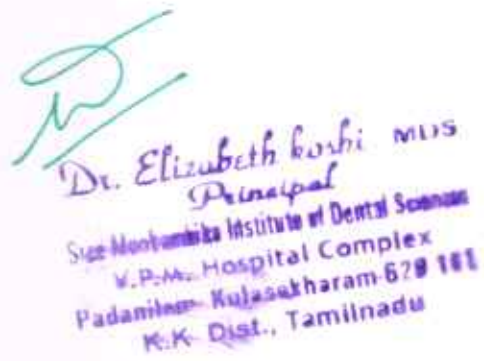 Dr. Elizabeth Koshi MDS
Principal
Sree Mookambika Institute of Dental Sciences
V.P.M. Hospital Complex
Padanilam Kulasekharam-629 161
K.K. Dist., Tamilnadu